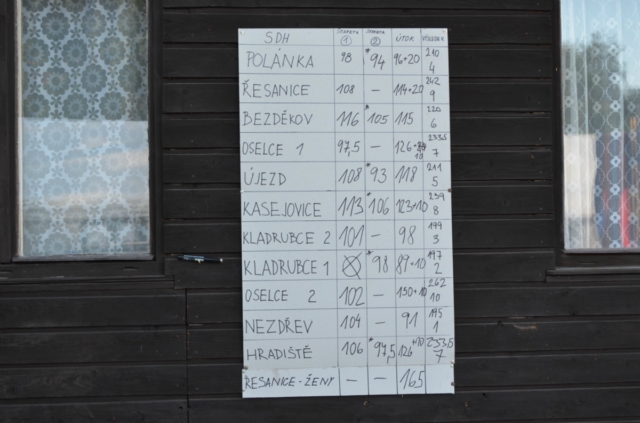 SDH ŠTAFETA ① ŠTAFETA ② ÚTOK VÝSLEDEK
POLÁNKA 98 *94 96+20 210 4
ŘESANICE 108 — 114+20 242 9
BEZDĚKOV 116 *105 115 220 6
OSELCE 1 97,5 — 126+ 10 233,5 7
ÚJEZD 108 *93 118 211 5
KASEJOVICE 113 *106 123+10 239 8
KLADRUBCE 2 101 — 98 199 3
KLADRUBCE 1 *98 89+10 197 2
OSELCE 2 102 — 150+10 262 10
NEZDŘEV 104 — 91 195 1
HRADIŠTĚ 106 *97,5 126+10 233,5 7
ŘESANICE - ŽENY — — 165